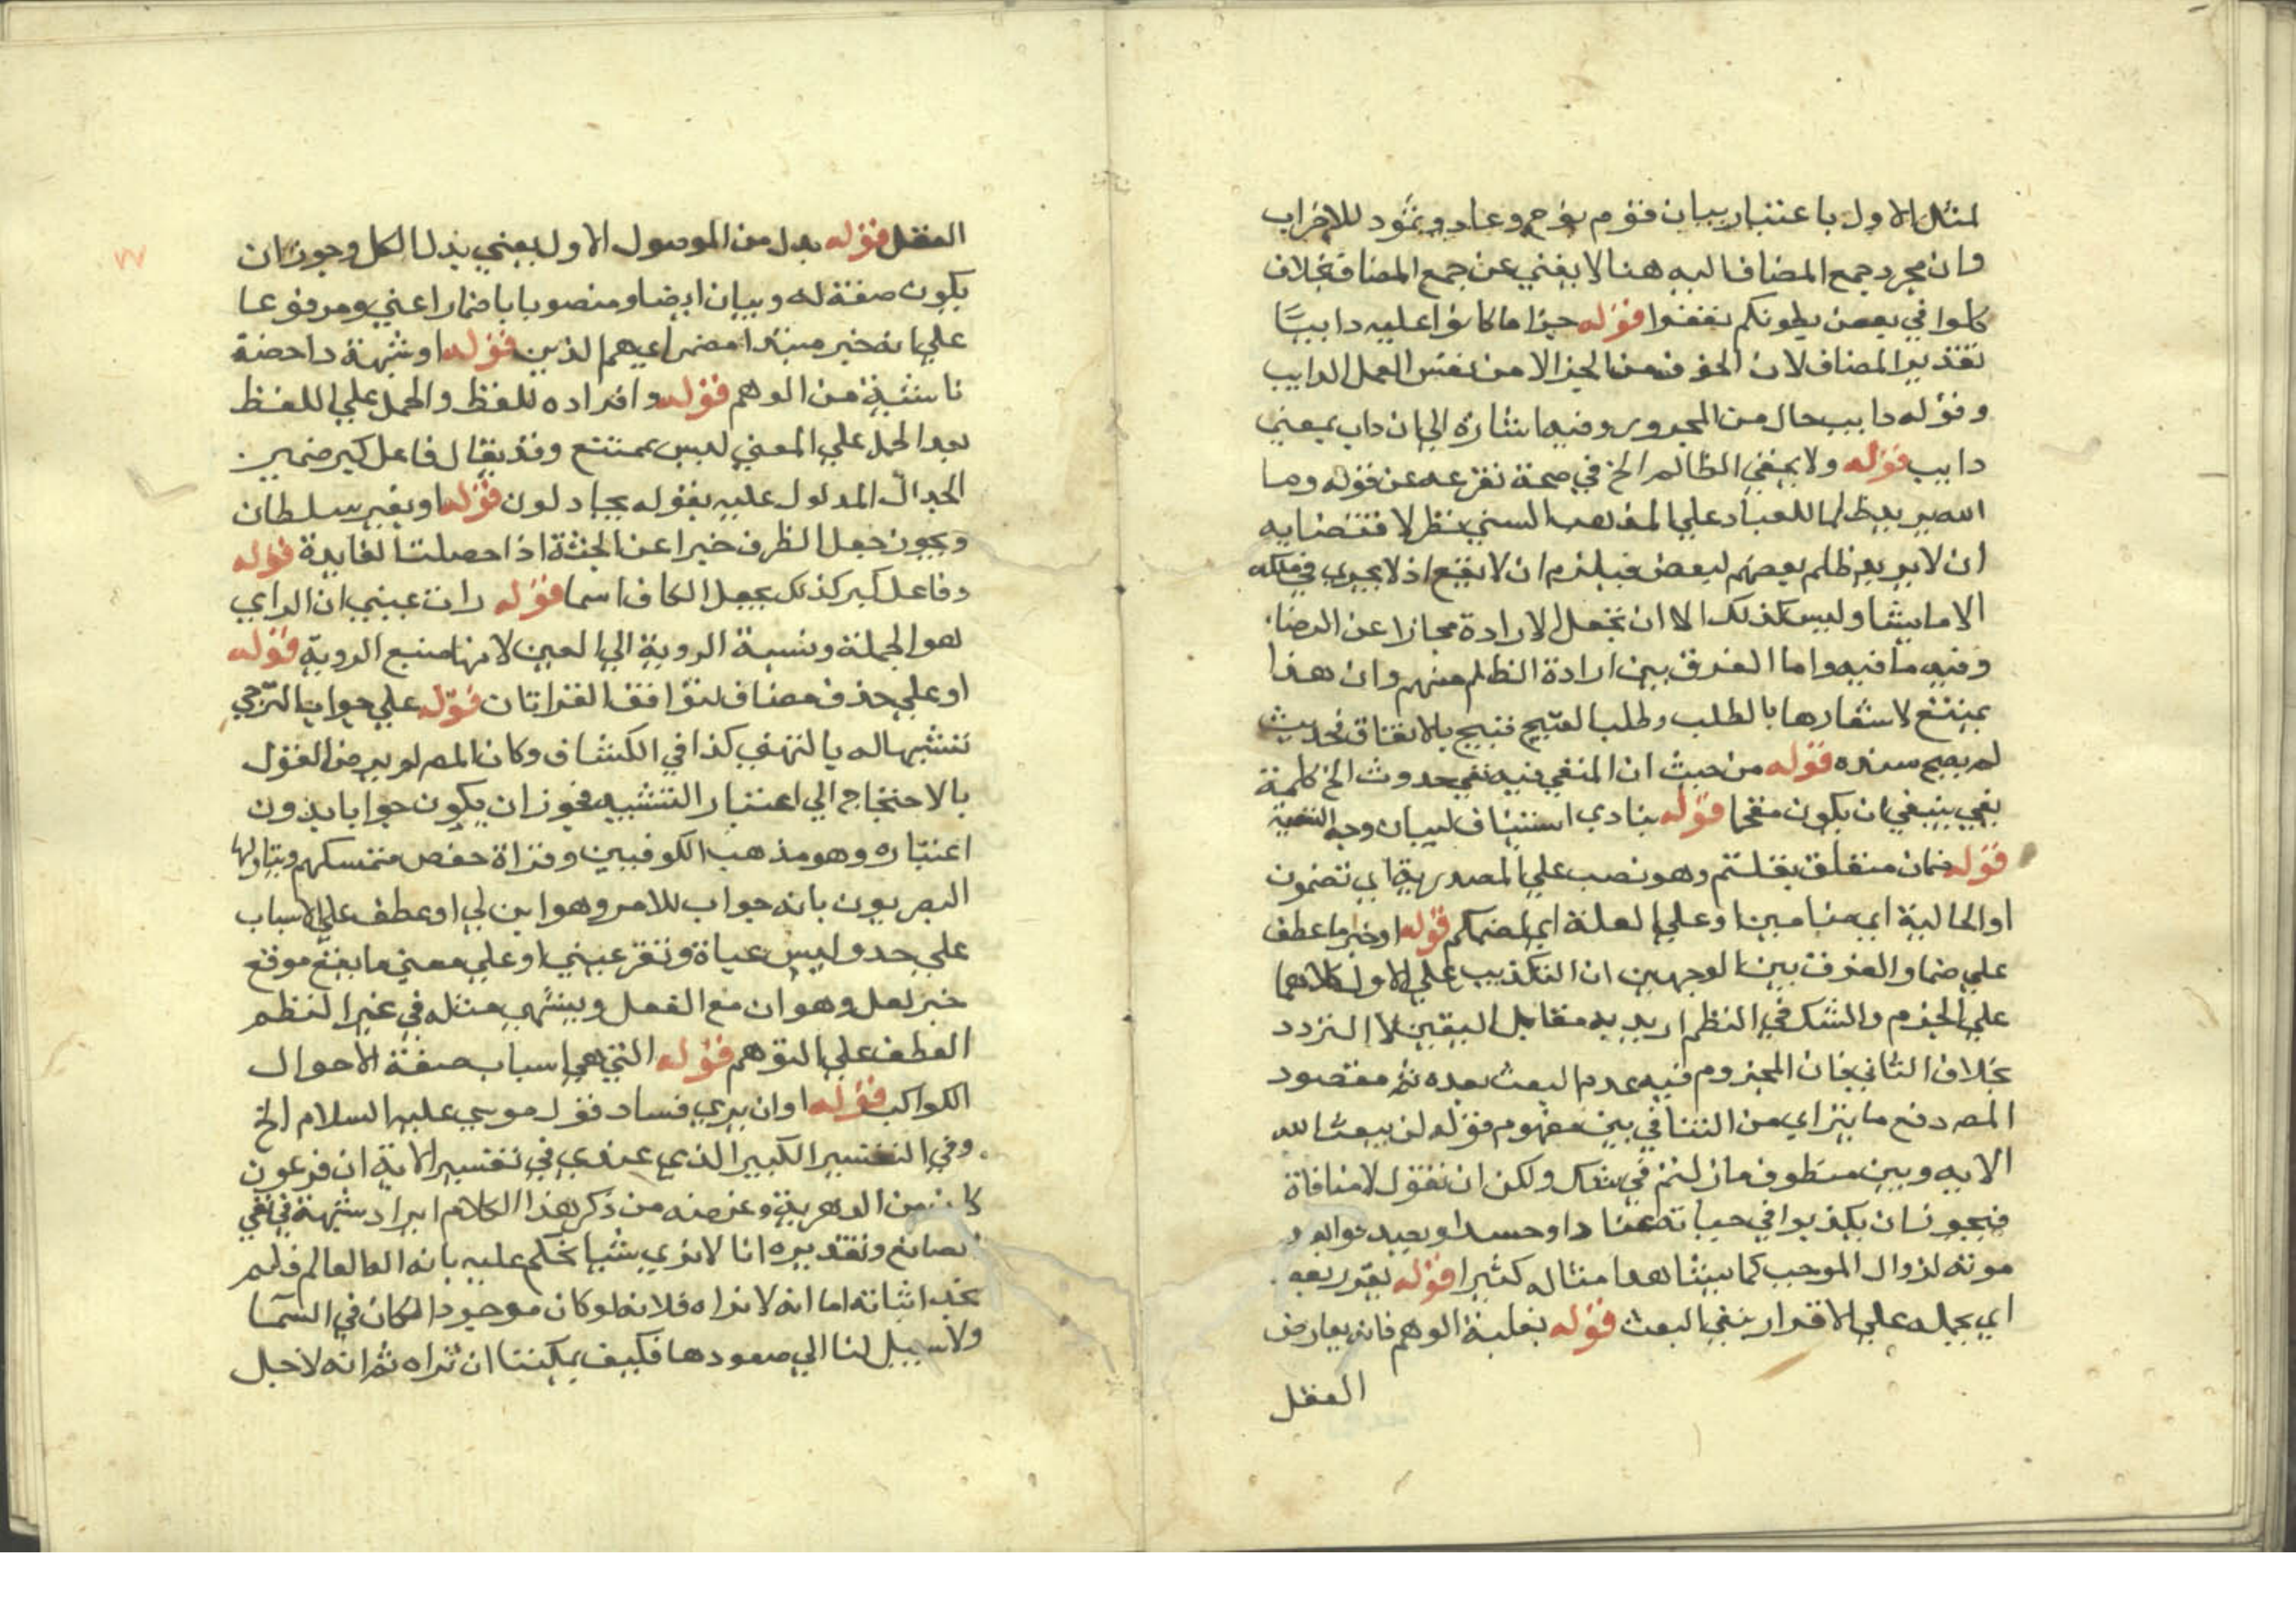 لمثل الاول باعتبار بيان قوم نوح وعاد وثمود للاخراب
وان مجرد جمع المضاف اليه هنا لا يغني عن جمع المضاف بخلاف
كلوا في بعض بطونكم تعفوا قوله جزا ما كانوا عليه دايبًا
تقدير المضاف لان الخوف من الجزا لا من نفس العمل الدايب
وقوله دايب حال من المجرور وفيه اشارة الي ان داب بمعني
دايب قوله ولا يخفي الظالم الخ في صحة تفرعه عن قوله وما
الله يريد ظلما للعباد علي المذهب السني نظر لاقتضايه
ان لا يريد ظلم بعضهم لبعض فيلزم ان لا يقع اذ لا يجري في ملكه
الا ما يشا وليس كذلك الا ان تجعل الارادة مجازا عن الرضا
وفيه ما فيه واما الفرق بين ارادة الظلم منهم وان هذا
بمبتغ لاشعارها بالطلب وطلب القبيح قبيح بالاتفاق فحديث
لم يصح سنده قوله من حيث ان المنفي فيه نفي حدوث الخ كلمة
نفي ينبغي ان يكون مقحما قوله ينادي استيناف لبيان وجه التسمية
قوله ضمان متعلق بقلتم وهو نصب علي المصدرية اي تضمون
او الحالية اي ضامين او علي العلة اي لضمكم قوله او خبر ما عطف
علي ضما والفرق بين الوجهين ان التكذيب علي الاول كلاهما
علي الجزم والشك في النظم اريد به مقابل اليقين لا التردد
بخلاف الثاني فان المجزوم فيه عدم البعث بعده ثم مقصود
المصـ دفع ما يتراي من التنافي بين مفهوم قوله لن يبعث الله
الايه وبين منطوق ما زلتم في شك ولكن ان نقول لا منافاة
فيجوز ان يكذبوا في حياته عنادا وحسدا وبعيد
موته لزوال الموجب كما يشاهد امثاله كثيرا قوله
اي يحمله علي الاقرار بنفي البعث قوله بغلبة الوهم فانه يعارض
العقل
العقل قوله بدل من الموصول الاول يعني بدل الكل وجوز ان
يكون صفة له وبيان ايضا ومنصوبا باضمار اعني ومرفوعا
علي انه خبر مبتدا مضمر اي هم الذين قوله او شبهة داحضة
ناشئة من الوهم قوله وافراده للفظ والحمل علي اللفظ
بعد الحمل علي المعني ليس بممتنع وقد يقال فاعل كبر ضمير
الجدال المدلول عليه بقوله يجادلون قوله او بغير سلطان
ويجوز جعل الظرف خبرا عن الجثة اذا حصلت الفايدة قوله
وفاعل كبر كذلك بجعل الكاف اسما قوله رات عيني ان الراي
هو الجملة ونسبة الروية الي العين لانها منبع الروية قوله
او علي حذف مضاف لتوافق القراتان قوله علي جواب الترجي
تشبيها له بالتمني كذا في الكشاف وكان المصـ لم يرض القول
بالاحتجاج الي اعتبار التشبيه فجوز ان يكون جوابا بدون
اعتباره وهو مذهب الكوفيين وقراة حفص متمسكهم ويتاولها
البصريون بانه جواب للامر وهو ابن لي او عطف علي الاسباب
علي حد ولبس عباة وتقر عيني او علي معني ما يقع موقع
خبر لعل وهو ان مع الفعل ويسمي مثله في غير النظم
العطف علي التوهم قوله التي هي اسباب صفة الاحوال
الكواكب قوله او ان يري فساد قول موسي عليه السلام الخ
وفي التفسير الكبير الذي عندي في تفسير الاية ان فرعون
كان من الدهرية وغرضه من ذكر هذا الكلام ايراد شبهة في نفي
الصانع وتقديره انا لا نري شيا نحكم عليه بانه اله العالم فلم
نجد اثباته اما انه لا نراه فلانه لو كان موجودا لكان في السما
ولا سبيل لنا الي صعودها فكيف يمكننا ان نراه ثم انه لاجل